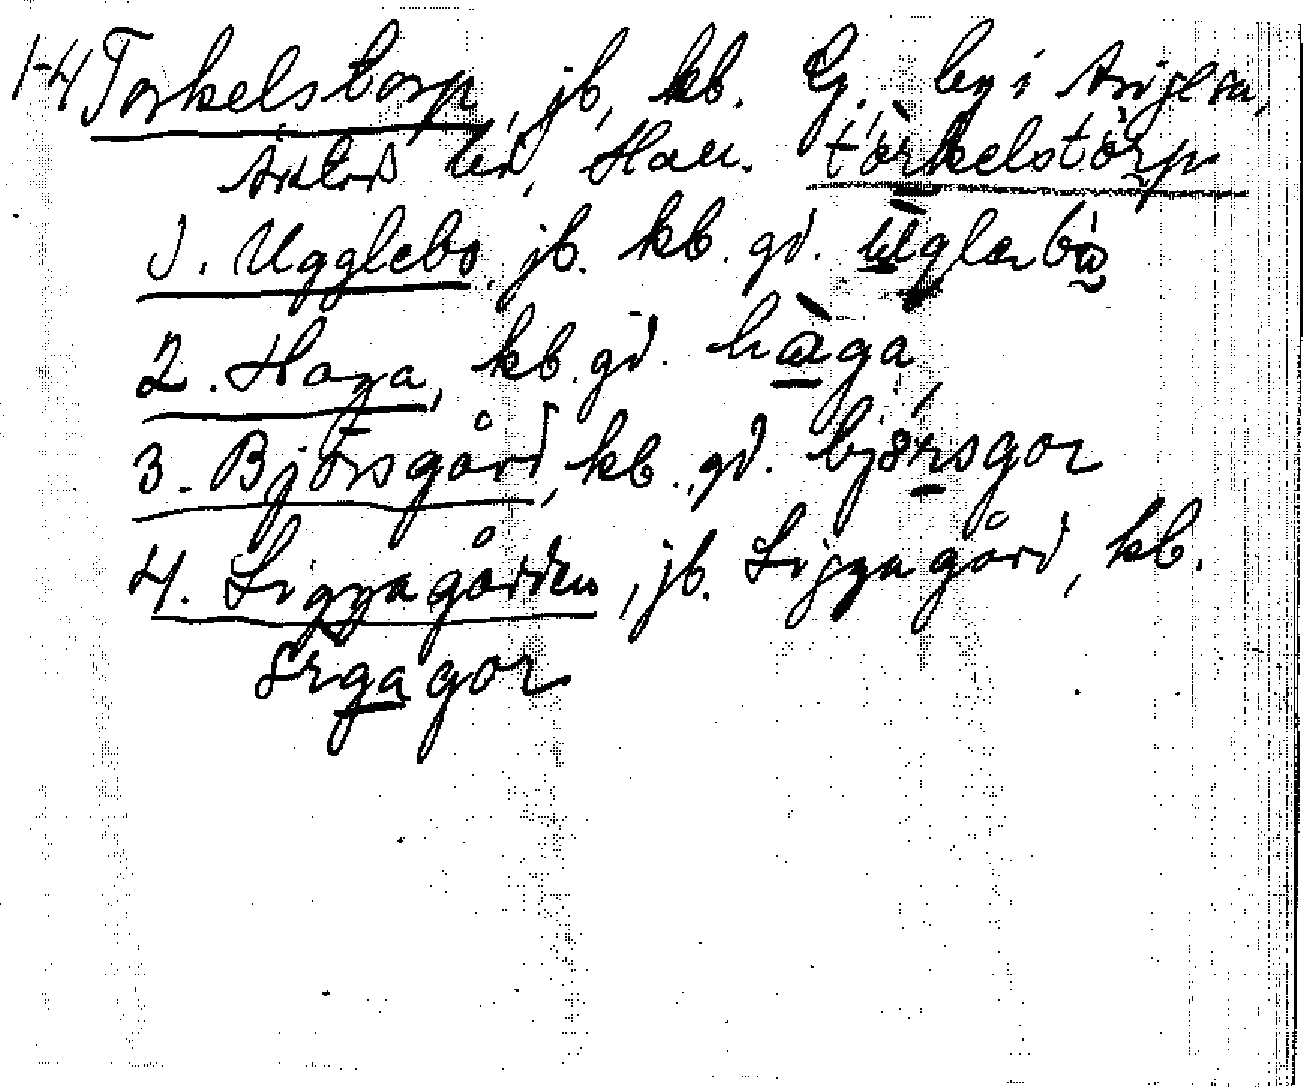 1-4 Torkelstorp, jb, kb. G. by i Svigleva,
Årstad hd, Hall. tòrkelstòrp
1. Ugglebo, jb. kb. gd. ùglabo
2. Haga, kb. gd. hàga
3. Björsgård, kb. gd. björsgor
4. Liggagården, jb. Liggagård, kb.
gor